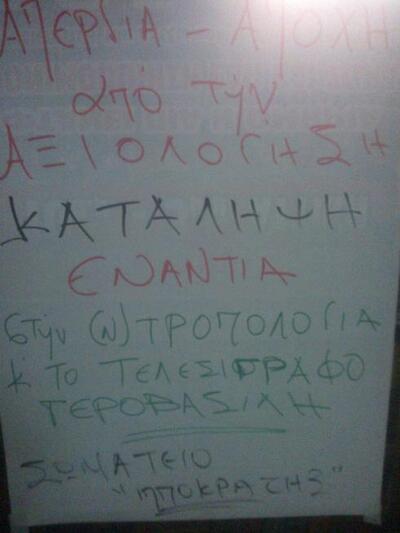 ΑΠΕΡΓΙΑ - ΑΠΟΧΗ
από την
ΑΞΙΟΛΟΓΗΣΗ
ΚΑΤΑΛΗΨΗ
ΕΝΑΝΤΙΑ
στην (Ν)ΤΡΟΠΟΛΟΓΙΑ
κ' ΤΟ ΤΕΛΕΣΙΓΡΑΦΟ
ΓΕΡΟΒΑΣΙΛΗ
ΣΩΜΑΤΕΙΟ
"ΙΠΠΟΚΡΑΤΗΣ"